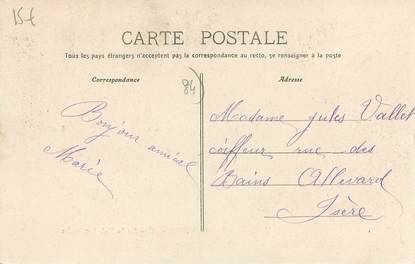 15f
CARTE POSTALE
Tous les pays étrangers n'acceptent pas la correspondance au recto, se renseigner à la poste
Correspondance
Adresse
84
Bonjour amical
Marie
Madame Jules Vallet
coiffeur rue des
Bains Allevard
Isère